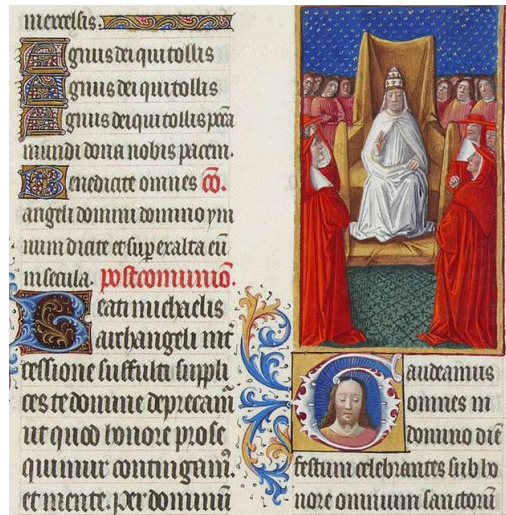 in excelsis.
Agnus dei qui tollis
Agnus dei qui tollis
Agnus dei qui tollis pecā
mundi dona nobis pacem.
Benedicite omnes cō.
angeli domini domino ym
num dicite et sup exalta eū
in secula. postcomuniō.
Beati michaelis
archangeli int̄
cessione suffulti suppli
ces te domine deprecam̄
ut quod honore prose
quimur contingam⁹
et mente. per dominū
Gaudeamus
omnes in
domino diē
festum celebrantes sub ho
nore omnium sanctorū